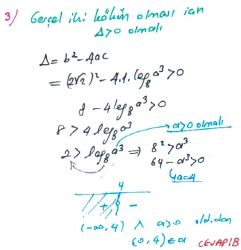 3) Gerçel iki kökün olması için
Δ>0 olmalı
Δ = b² - 4ac
= (2√2)² - 4.1.log₈a³ > 0
8 - 4log₈a³ > 0
8 > 4log₈a³
a>0 olmalı
2 > log₈a³ ⇒ 8² > a³
64 - a³ > 0
4=a
4
+ -
(-∞, 4) ∧ a>0 old.dan
(0, 4) ∈ a
CEVAP B